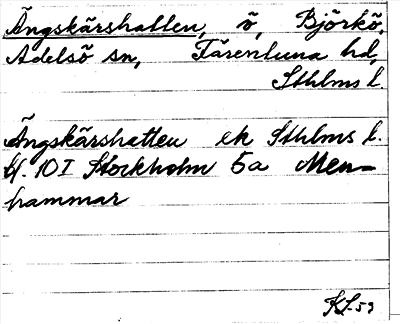 Ängskärshatten, ö, Björkö,
Adelsö sn, Färentuna hd,
Sthlms l.
Ängskärshatten ek Sthlms l.
bl. 10 I Stockholm 5a Men-
hammar
KL-53